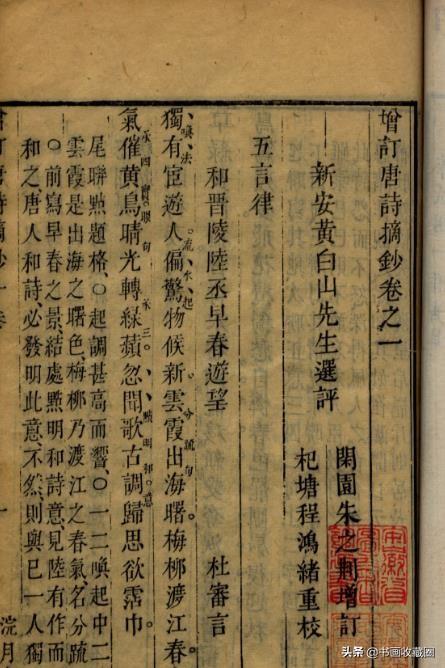 增訂唐詩摘鈔卷之一
新安黄白山先生選評
閑園朱之荆增訂
杞塘程鴻緒重校
五言律
和晋陵陸丞早春遊望
杜審言
獨有宦遊人偏驚物候新雲霞出海曙梅柳渡江春
氣催黄鳥晴光轉綠蘋忽聞歌古調歸思欲霑巾
尾聯㸃題格○起調甚高而響○一二喚起中二
雲霞是出海之曙色梅柳乃渡江之春氣名分䟽
○前寫早春之景結處㸃明和詩意見陸有作而
和之唐人和詩必發明此意不然則與已一人獨
增訂唐詩摘鈔 卷
一
浣月
头条 @书画收藏圈